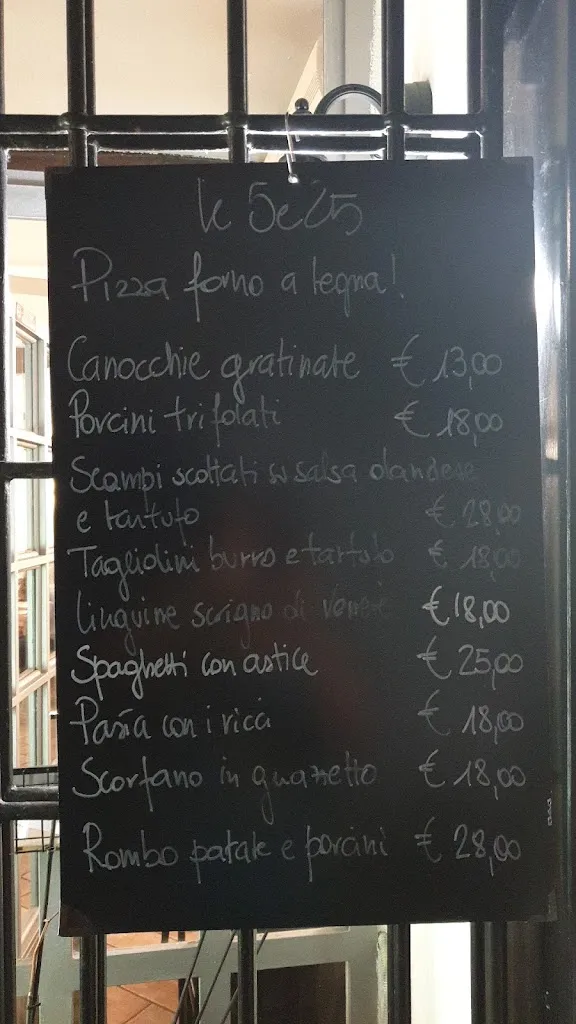 le 5e25
Pizza forno a legna!
Canocchie gratinate € 13,00
Porcini trifolati € 18,00
Scampi scottati su salsa olandese
e tartufo € 28,00
Tagliolini burro e tartufo € 18,00
Linguine scrigno di venere € 18,00
Spaghetti con astice € 25,00
Pasta con i ricci € 18,00
Scorfano in guazzetto € 18,00
Rombo patate e porcini € 28,00